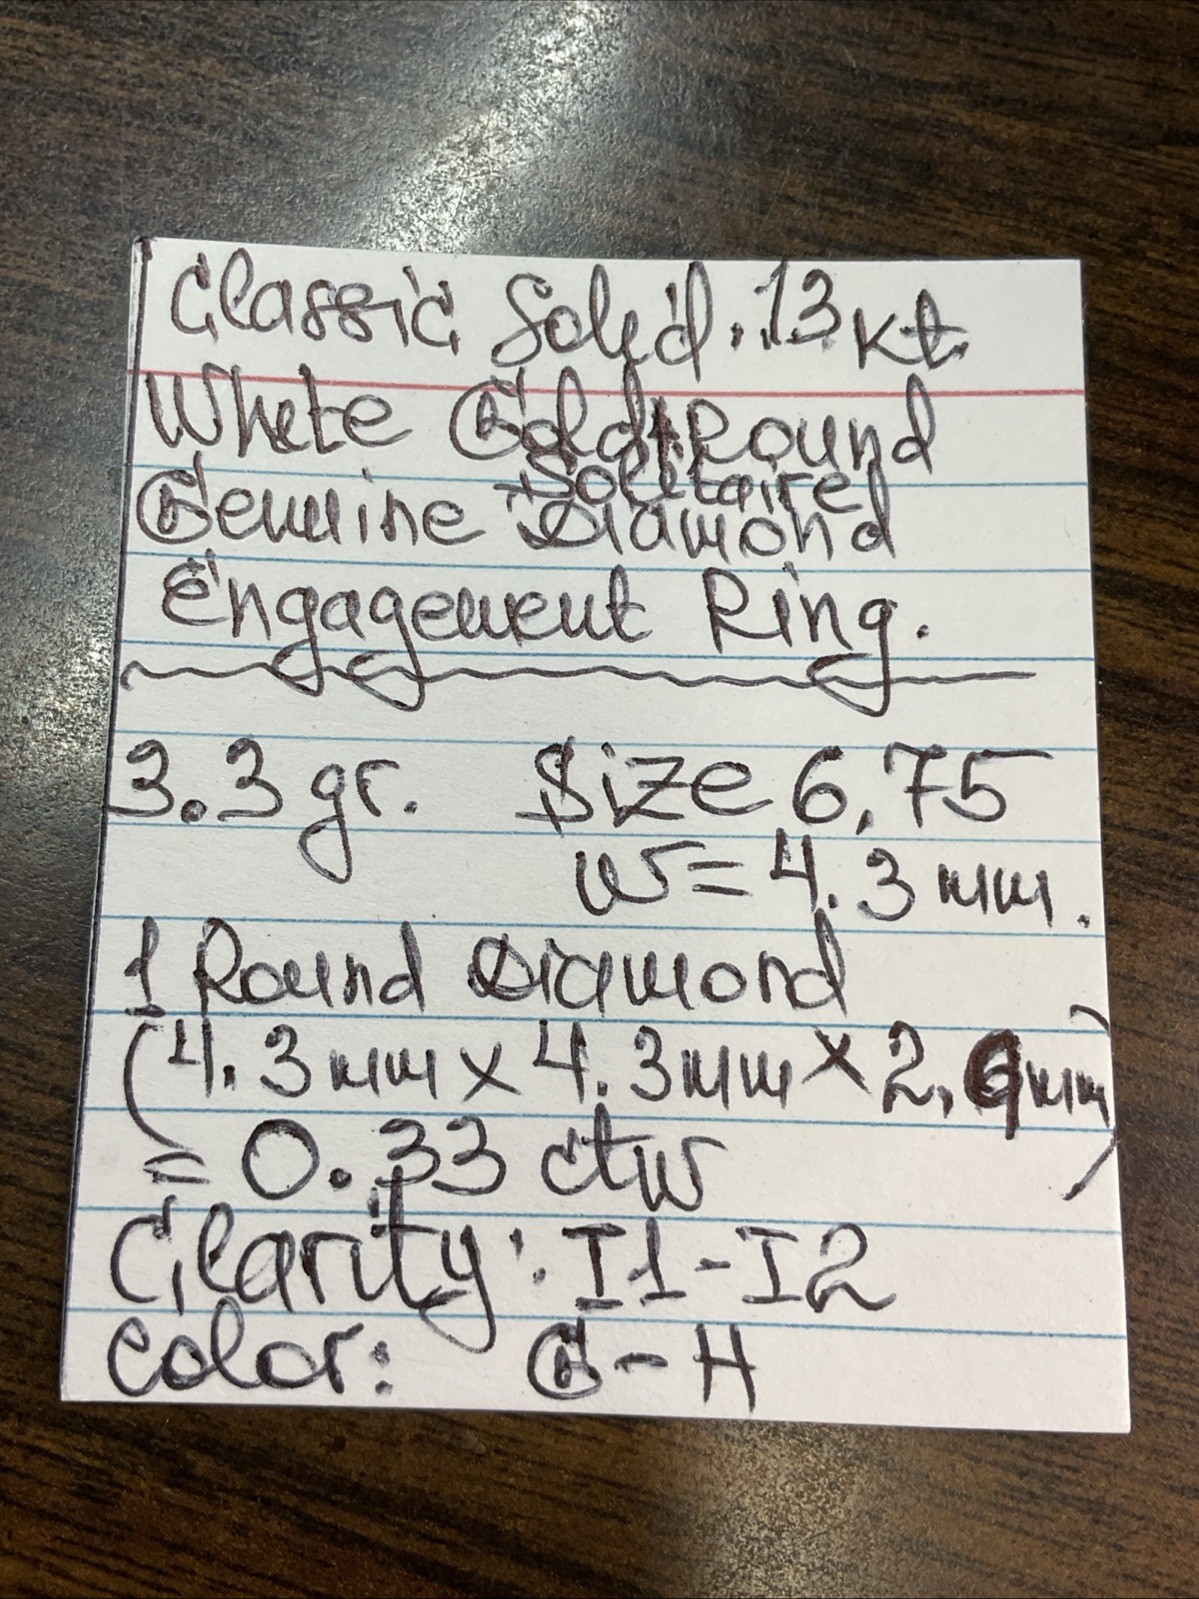 Classic Solid. 13 kt.
White Gold Round
Solitaire
Genuine Diamond
Engagement Ring.
3.3 gr. Size 6,75
w = 4.3 mm.
1 Round Diamond
(4.3 mm x 4.3 mm x 2. mm)
= 0.33 ctw
Clarity: I1 - I2
Color: G - H